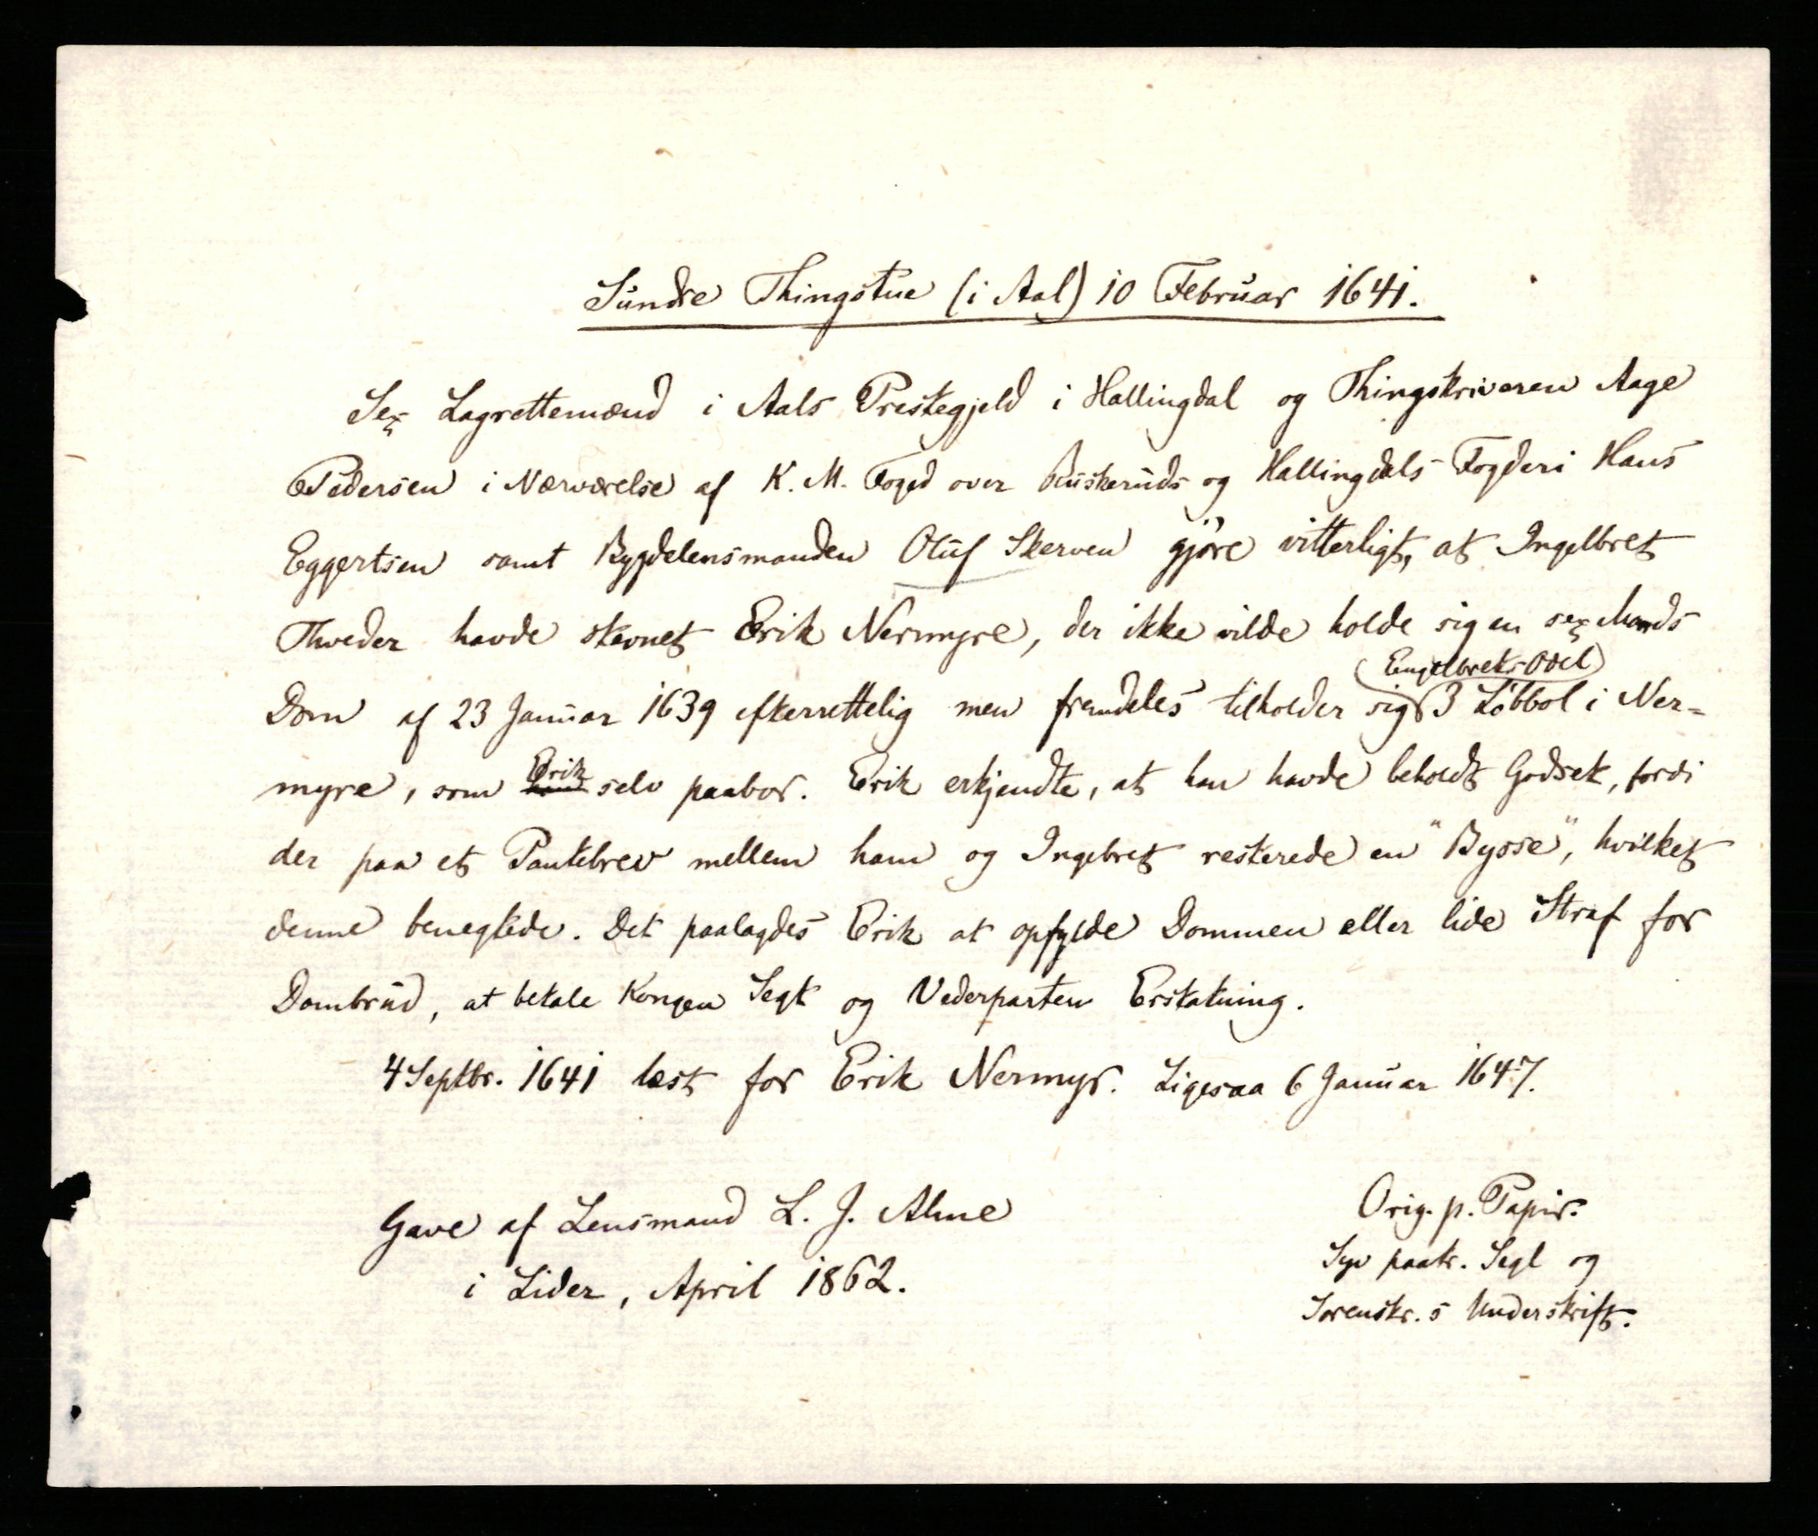 Sundre Thingstue (i Aal) 10 Februar 1641.
Sex Lagrettemænd i Aals Prestegjeld i Hallingdal og Thingskriveren Aage
Pedersen i Nærværelse af K. M. Foged over Buskeruds og Hallingdals Fogderi Hans
Eggertsen samt Bygdelensmanden Oluf Skerven gjøre vitterligt, at Ingelbret
Thveder havde stevnet Erik Nermyre, der ikke vilde holde sig en sex Mands
Dom af 23 Januar 1639 efterrettelig men fremdeles tilholder sig Engelbrets Odel 3 Løbbol i Ner-
myre, som Erik selv paabor. Erik erkjendte, at han havde beholdt Godset, fordi
der paa et Pantebrev mellem ham og Ingebret resterede en "Bysse", hvilket
denne benegtede. Det paalagdes Erik at opfylde Dommen eller lide Straf for
Dombrud, at betale Kongen Segt og Vederparten Erstatning.
4 Septbr. 1641 læst for Erik Nermyr. Ligesaa 6 Januar 1647.
Gave af Lensmand L. J. Alme
i Lider, April 1862.
Orig. p. Papir.
Syv paatr. Segl og
Sorenskr.s Underskrift.